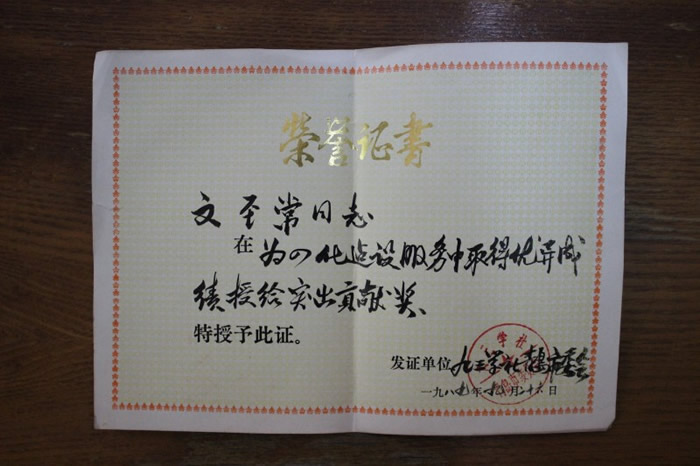 荣誉证书
文圣常同志
在为四化建设服务中取得优异成
绩授给突出贡献奖、
特授予此证。
发证单位 九三学社青岛市委会
一九八九年 月二十六日